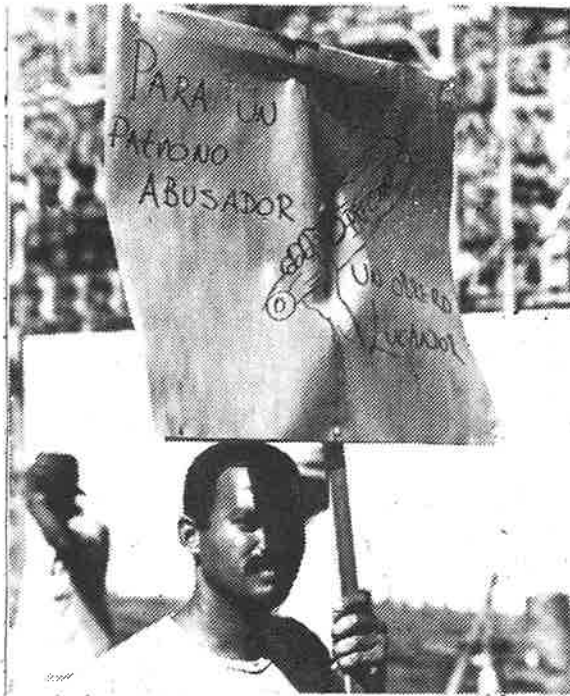 PARA UN
PATRONO
ABUSADOR
UN OBRERO
LUCHADOR